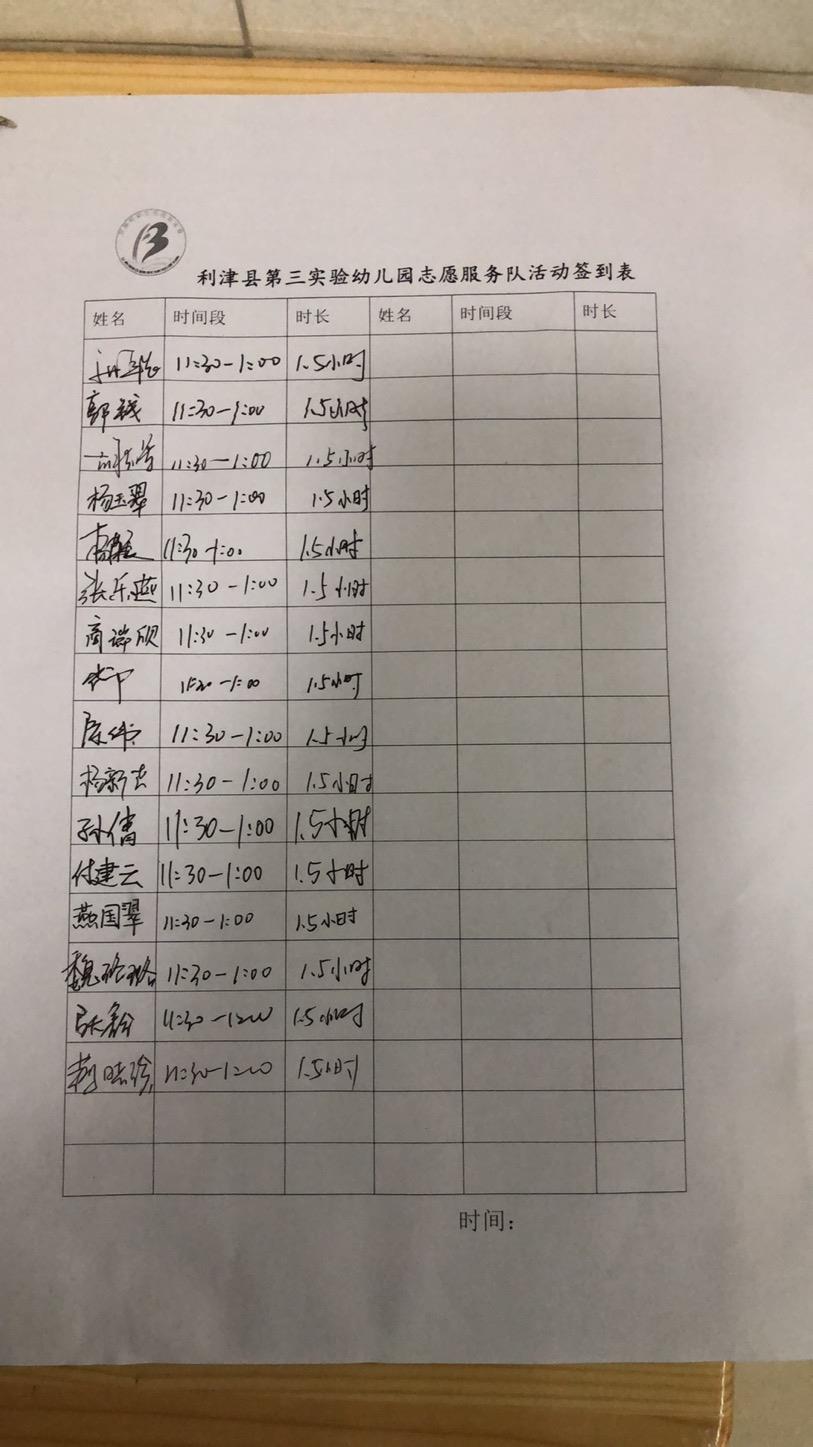 利津县第三实验幼儿园志愿服务队活动签到表
姓名 时间段 时长 姓名 时间段 时长
11:30-1:00 1.5小时
郭钱 11:30-1:00 1.5小时
11:30-1:00 1.5小时
杨玉翠 11:30-1:00 1.5小时
11:30-1:00 1.5小时
张乐燕 11:30-1:00 1.5小时
商瑞欣 11:30-1:00 1.5小时
11:30-1:00 1.5小时
陈伟 11:30-1:00 1.5小时
杨新吉 11:30-1:00 1.5小时
孙倩 11:30-1:00 1.5小时
付建云 11:30-1:00 1.5小时
燕国翠 11:30-1:00 1.5小时
魏璐璐 11:30-1:00 1.5小时
11:30-1:00 1.5小时
11:30-1:00 1.5小时
时间：